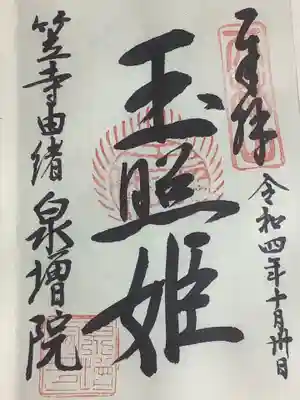 奉拝
令和四年十月卅日
玉照姫
笠寺由緒
泉増院